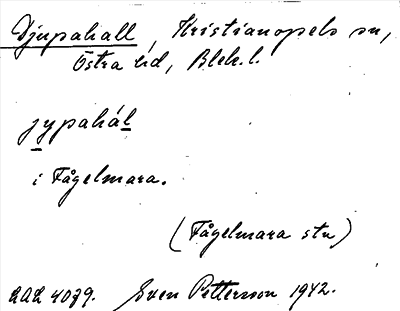 Djupahall, Kristianopels sn,
Östra hd, Blek. l.
jypahál
i Fågelmara.
(Fågelmara stn)
4079. Sven Petterson 1942.